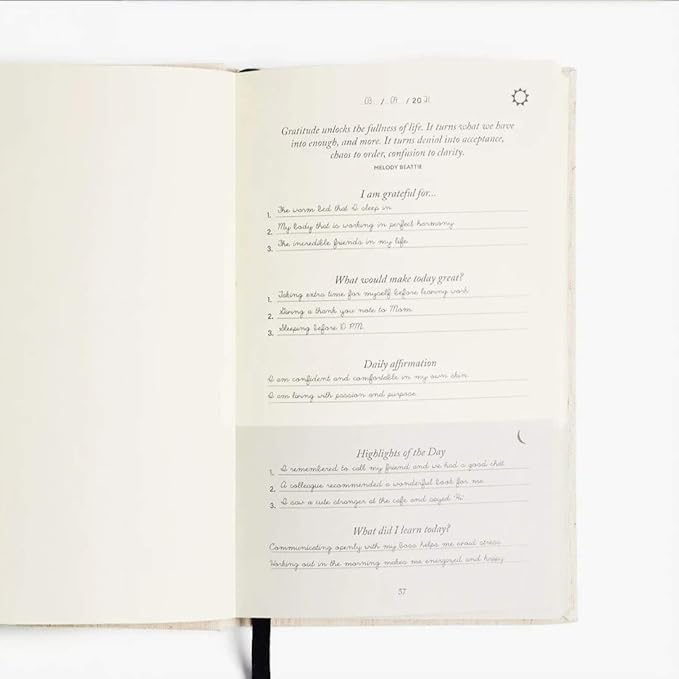 03 / 04 / 20 21
Gratitude unlocks the fullness of life. It turns what we have
into enough, and more. It turns denial into acceptance,
chaos to order, confusion to clarity.
MELODY BEATTIE
I am grateful for...
1. The warm bed that I sleep in.
2. My body that is working in perfect harmony.
3. The incredible friends in my life.
What would make today great?
1. Taking extra time for myself before leaving work.
2. Giving a thank you note to Mom.
3. Sleeping before 10 PM.
Daily affirmation
I am confident and comfortable in my own skin.
I am living with passion and purpose.
Highlights of the Day
1. I remembered to call my friend and we had a good chat.
2. A colleague recommended a wonderful book for me.
3. I saw a cute stranger at the cafe and sayed "Hi"
What did I learn today?
Communicating openly with my boss helps me avoid stress.
Working out in the morning makes me energized and happy.
57